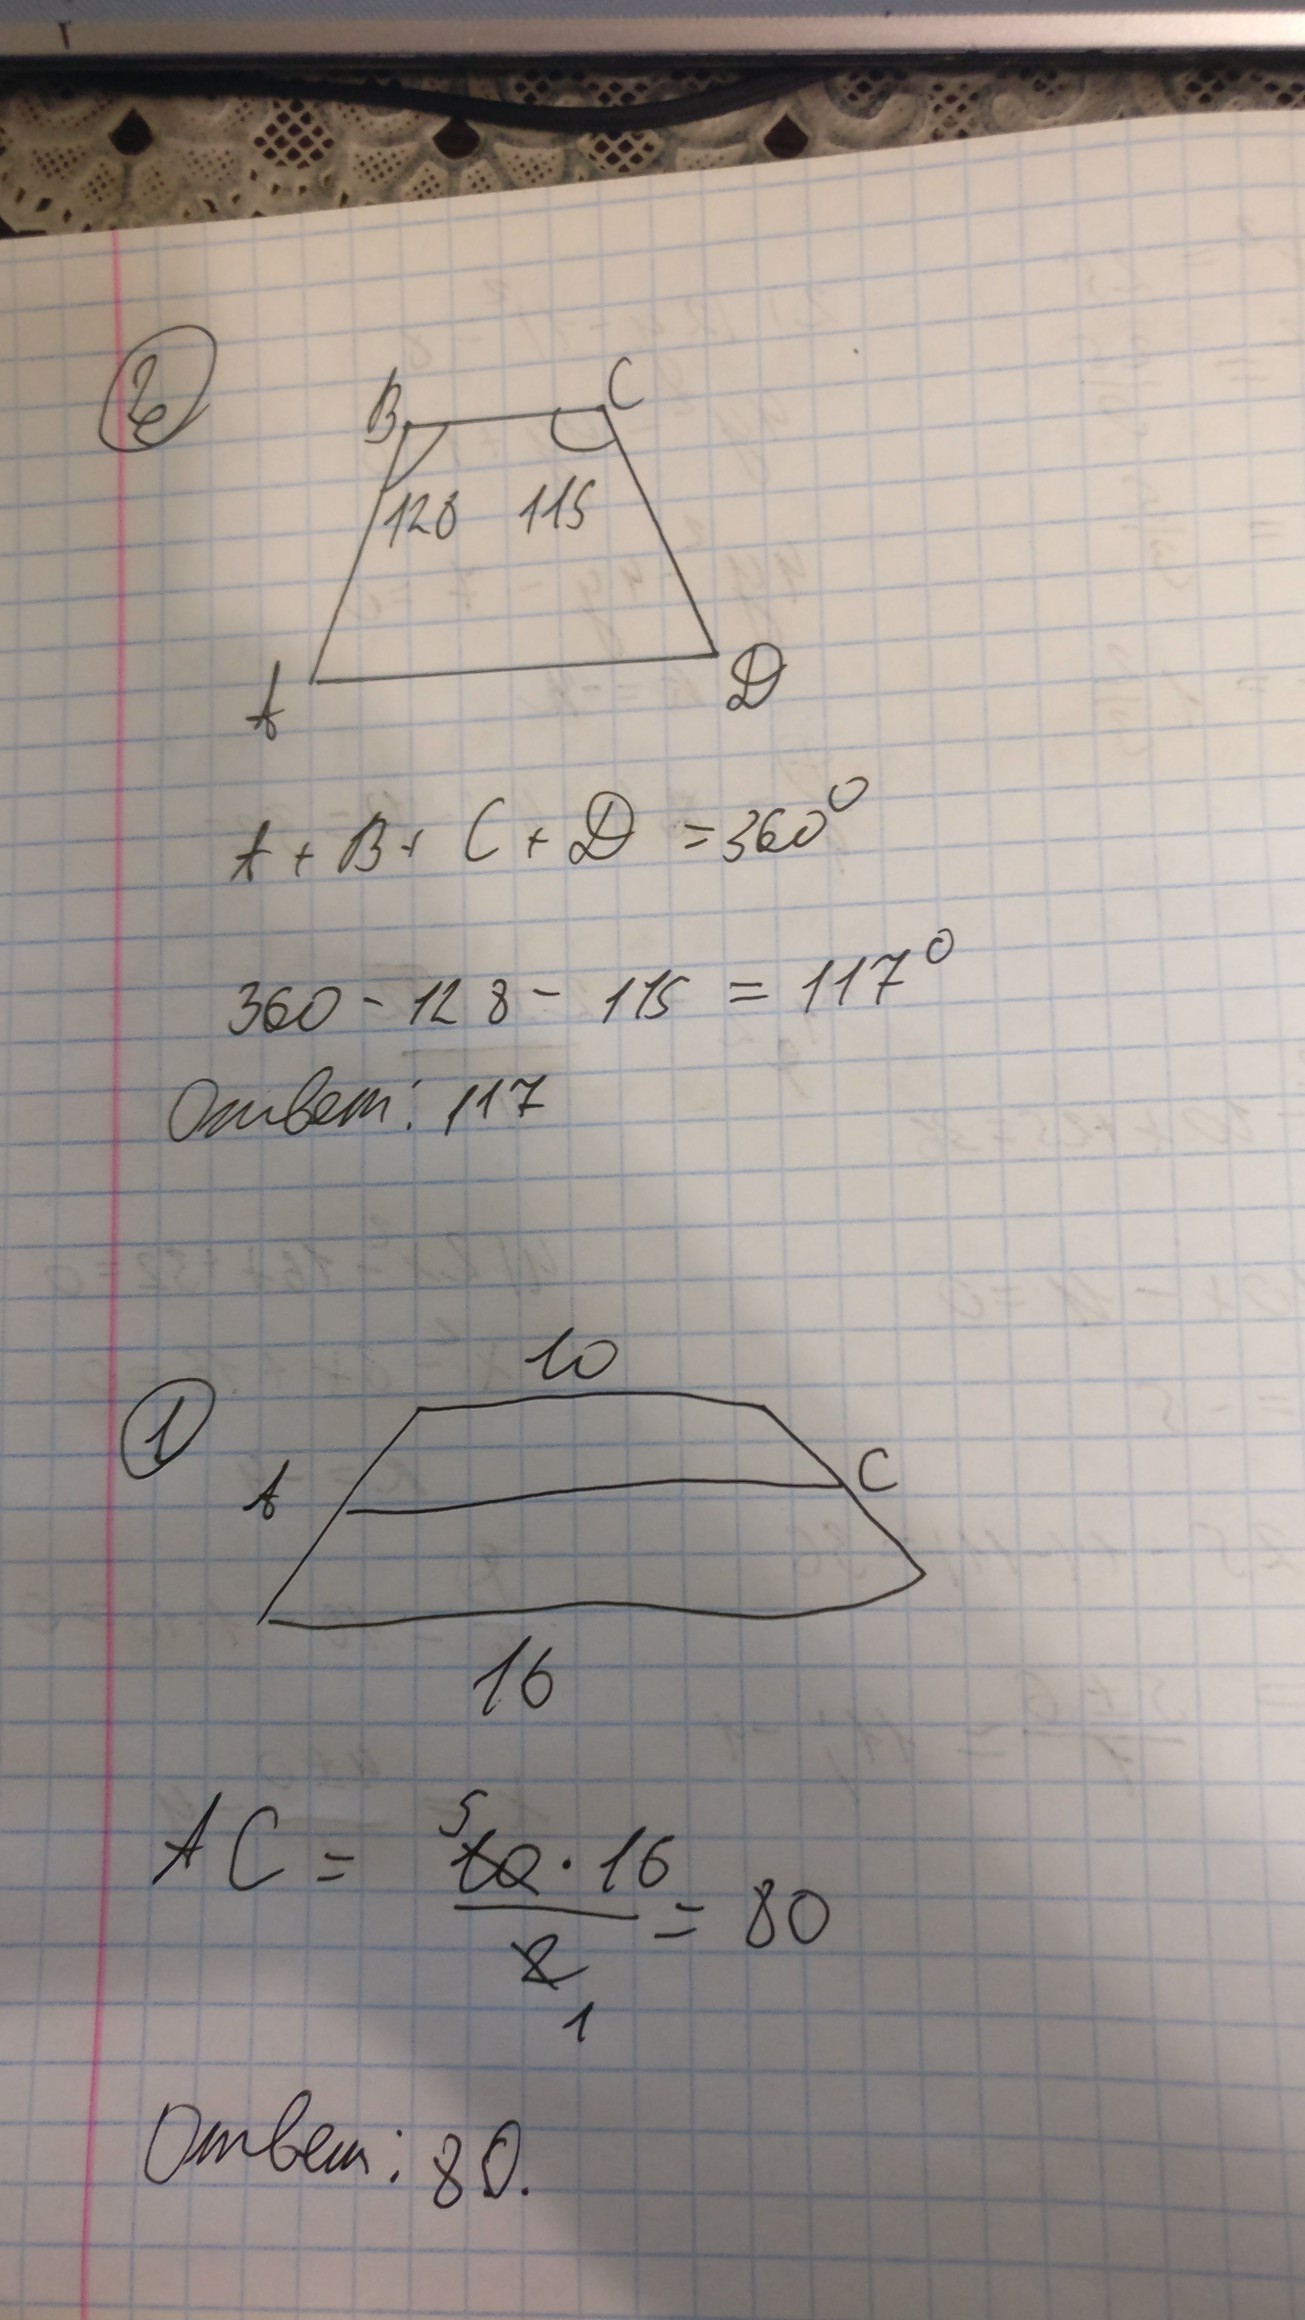 2
B C
128 115
A D
A + B + C + D = 360°
360 - 128 - 115 = 117°
Ответ: 117
1
10
A C
16
5
AC = 10 · 16 / 2 = 80
1
Ответ: 80.